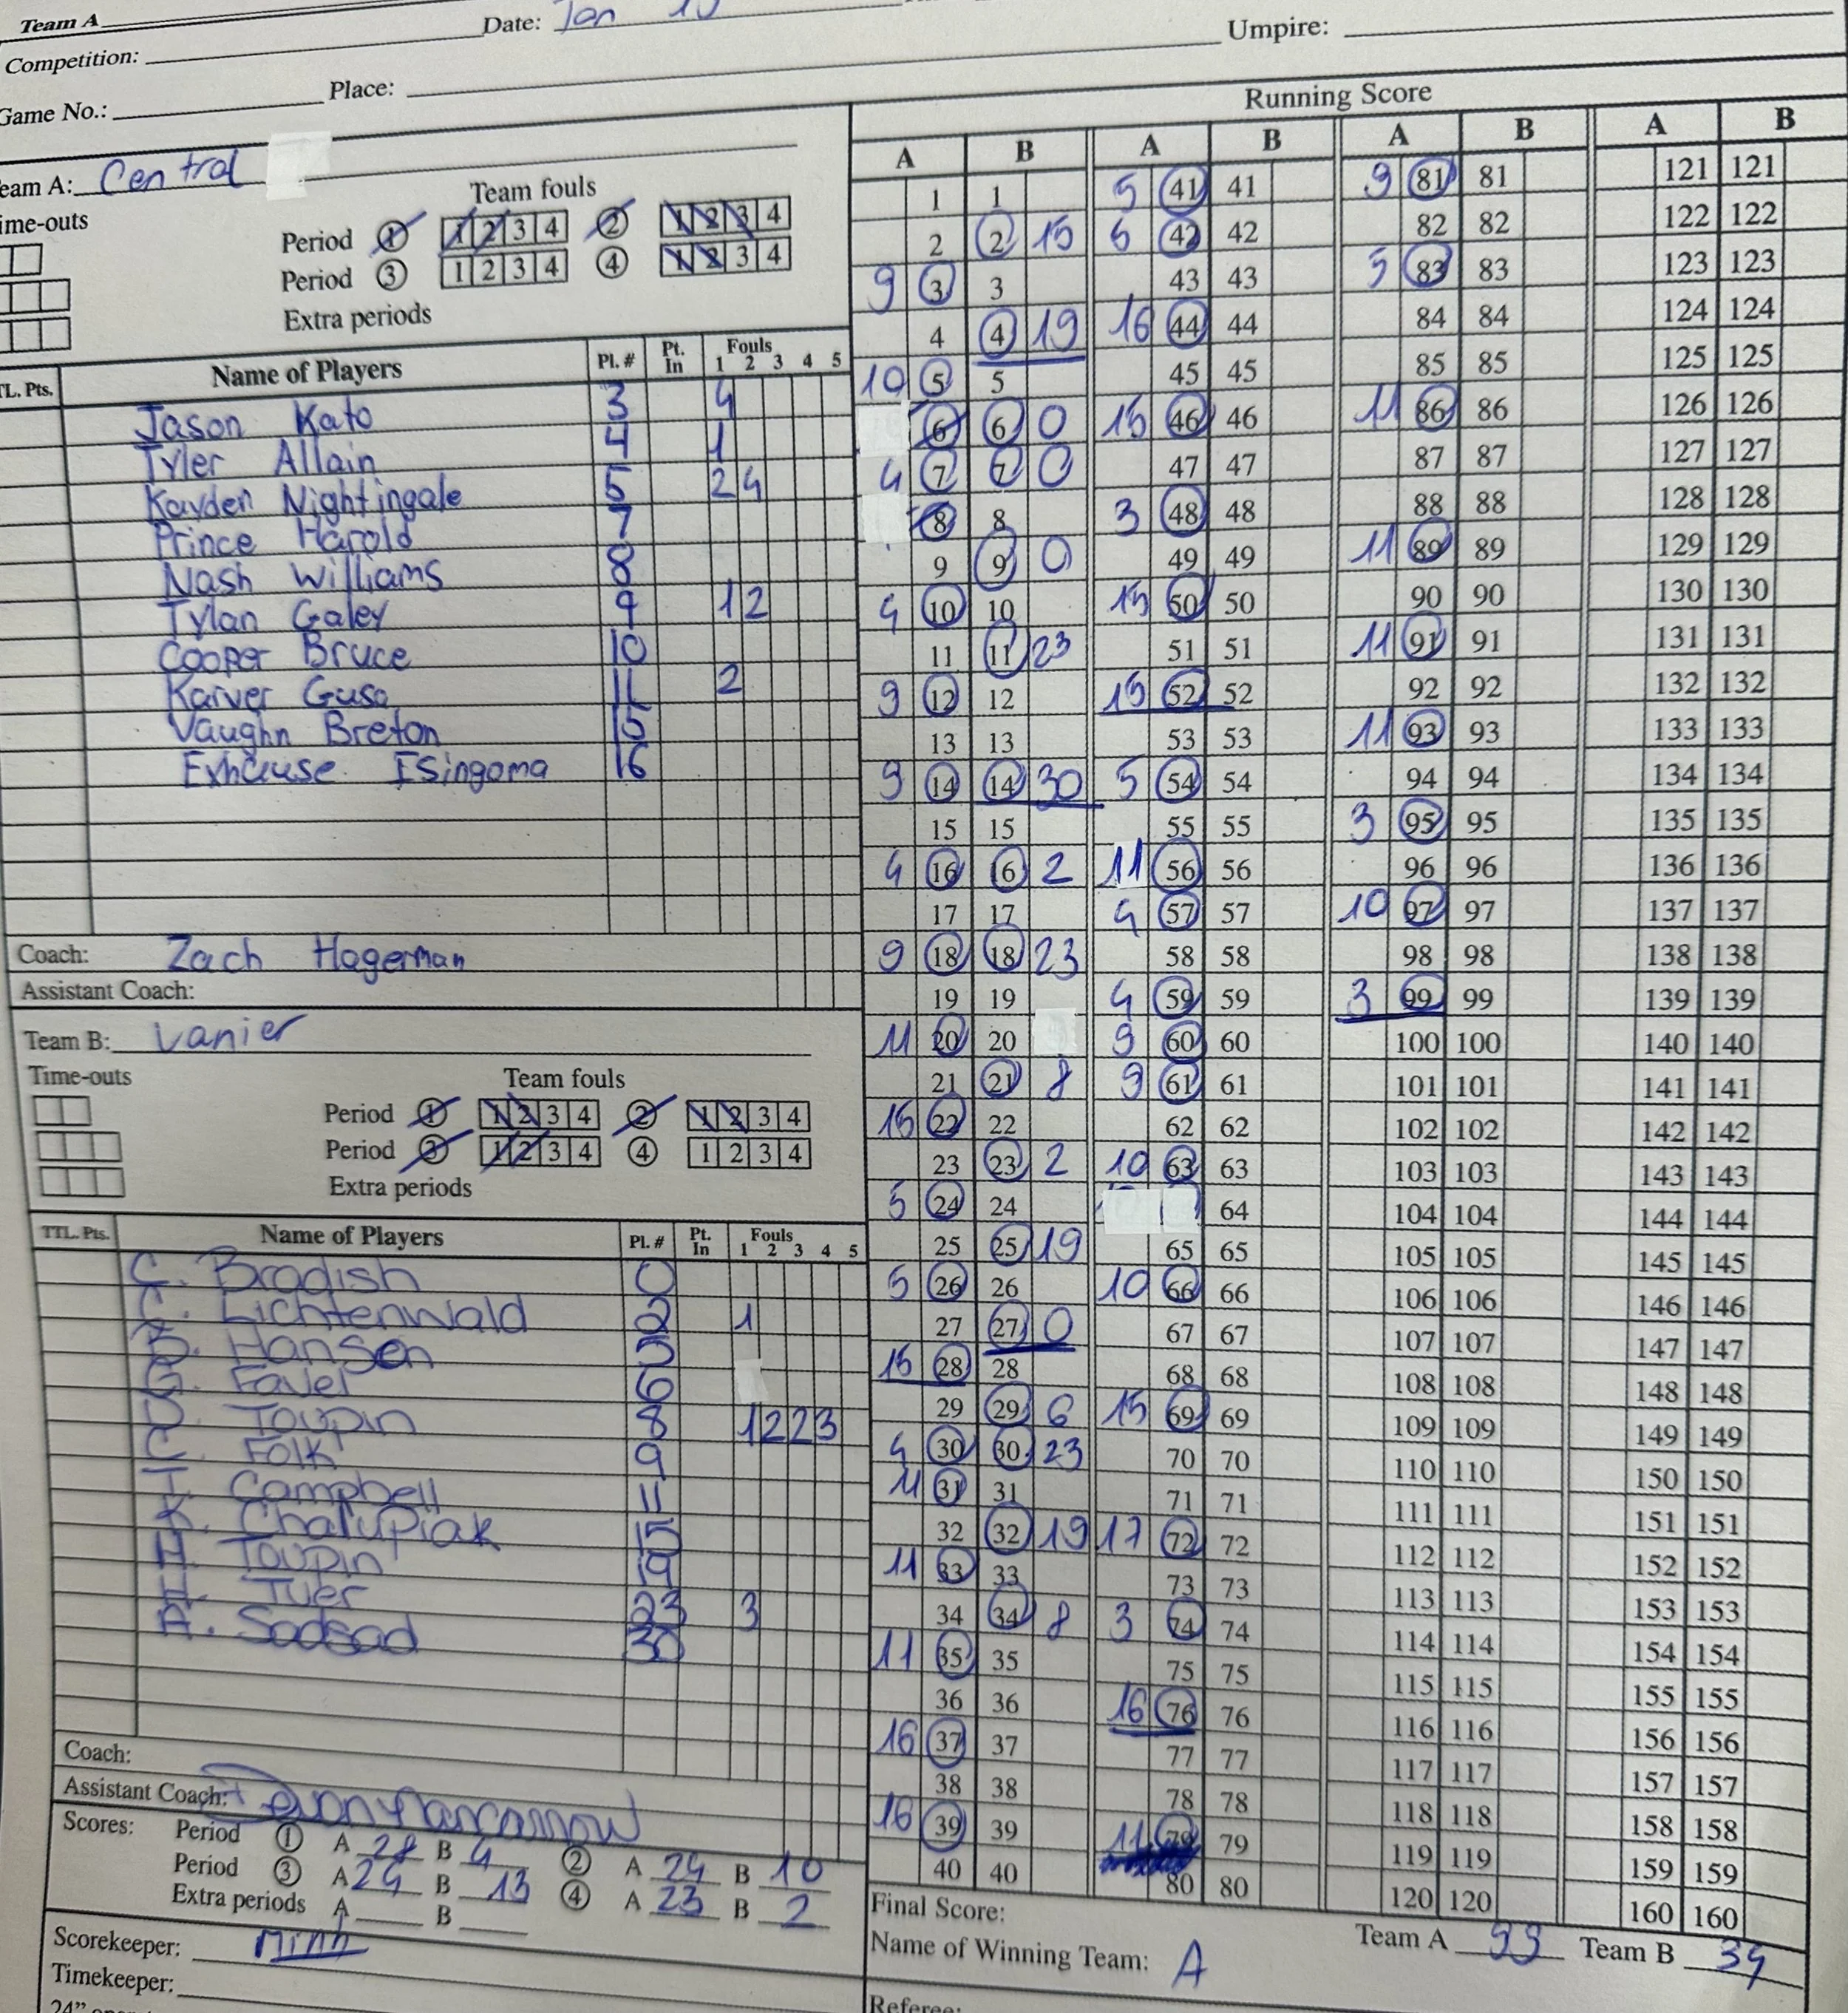 Team A
Date: Jan 10
Competition:
Umpire:
Place:
Game No.:
Running Score
eam A: Central
Team fouls
ime-outs
Period 1 1 2 3 4 2 1 2 3 4
Period 3 1 2 3 4 4 1 2 3 4
Extra periods
TL. Pts. Name of Players Pl. # Pt. In Fouls 1 2 3 4 5
Jason Kato 3 4
Tyler Allain 4 1
Kayden Nightingale 5 2 4
Prince Harold 7
Nash Williams 8
Tylan Galey 9 1 2
Cooper Bruce 10
Karver Guso 11 2
Vaughn Breton 15
Exhause Isingoma 16
Coach: Zach Hagerman
Assistant Coach:
Team B: Vanier
Time-outs
Team fouls
Period 1 1 2 3 4 2 1 2 3 4
Period 3 1 2 3 4 4 1 2 3 4
Extra periods
TTL. Pts. Name of Players Pl. # Pt. In Fouls 1 2 3 4 5
C. Bradish 0
C. Lichtenwald 2 1
B. Hansen 5
G. Favel 6
D. Toupin 8 1 2 2 3
C. Folk 9
T. Campbell 11
K. Chalupiak 15
H. Toupin 19
H. Tuer 23 3
A. Sadsad 30
Coach:
Assistant Coach:
Scores: Period 1 A 28 B 4 2 A 24 B 10
Period 3 A 24 B 13 4 A 23 B 2
Extra periods A B
Scorekeeper: Minh
Timekeeper:
A B A B A B A B
1 1 5 41 41 9 81 81 121 121
2 2 15 5 42 42 82 82 122 122
9 3 3 43 43 5 83 83 123 123
4 4 19 16 44 44 84 84 124 124
10 5 5 45 45 85 85 125 125
6 6 0 15 46 46 11 86 86 126 126
4 7 7 0 47 47 87 87 127 127
8 8 3 48 48 88 88 128 128
9 9 0 49 49 11 89 89 129 129
4 10 10 15 50 50 90 90 130 130
11 11 23 51 51 11 91 91 131 131
9 12 12 15 52 52 92 92 132 132
13 13 53 53 11 93 93 133 133
9 14 14 30 5 54 54 94 94 134 134
15 15 55 55 3 95 95 135 135
4 16 16 2 11 56 56 96 96 136 136
17 17 4 57 57 10 97 97 137 137
9 18 18 23 58 58 98 98 138 138
19 19 4 59 59 3 99 99 139 139
11 20 20 9 60 60 100 100 140 140
21 21 8 9 61 61 101 101 141 141
16 22 22 62 62 102 102 142 142
23 23 2 10 63 63 103 103 143 143
5 24 24 64 104 104 144 144
25 25 19 65 65 105 105 145 145
5 26 26 10 66 66 106 106 146 146
27 27 0 67 67 107 107 147 147
15 28 28 68 68 108 108 148 148
29 29 6 15 69 69 109 109 149 149
4 30 30 23 70 70 110 110 150 150
11 31 31 71 71 111 111 151 151
32 32 19 17 72 72 112 112 152 152
11 33 33 73 73 113 113 153 153
34 34 8 3 74 74 114 114 154 154
11 35 35 75 75 115 115 155 155
36 36 16 76 76 116 116 156 156
16 37 37 77 77 117 117 157 157
38 38 78 78 118 118 158 158
16 39 39 11 79 79 119 119 159 159
40 40 80 80 120 120 160 160
Final Score: Team A 99 Team B 39
Name of Winning Team: A
Referee: